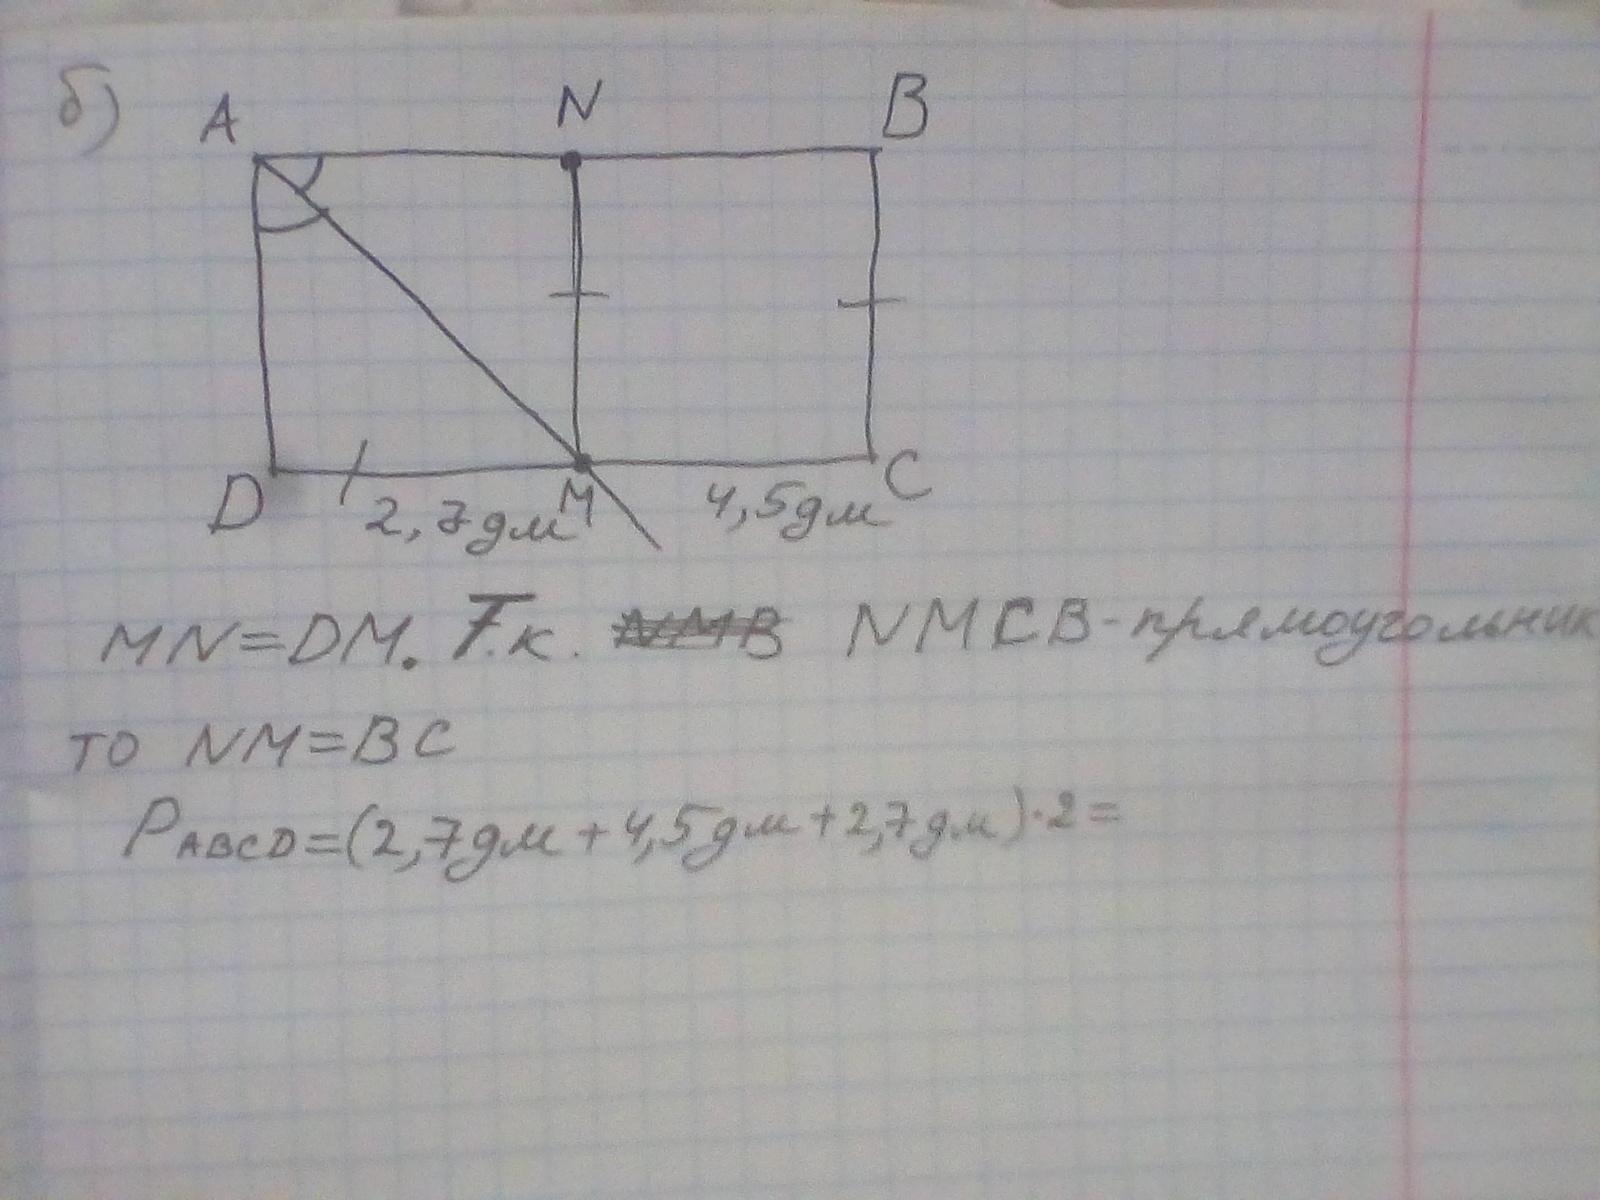 б)
A N B
D 2,7дм M 4,5дм C
MN=DM. Т.к. NMCB-прямоугольник
то NM=BC
PABCD=(2,7дм+4,5дм+2,7дм)·2=